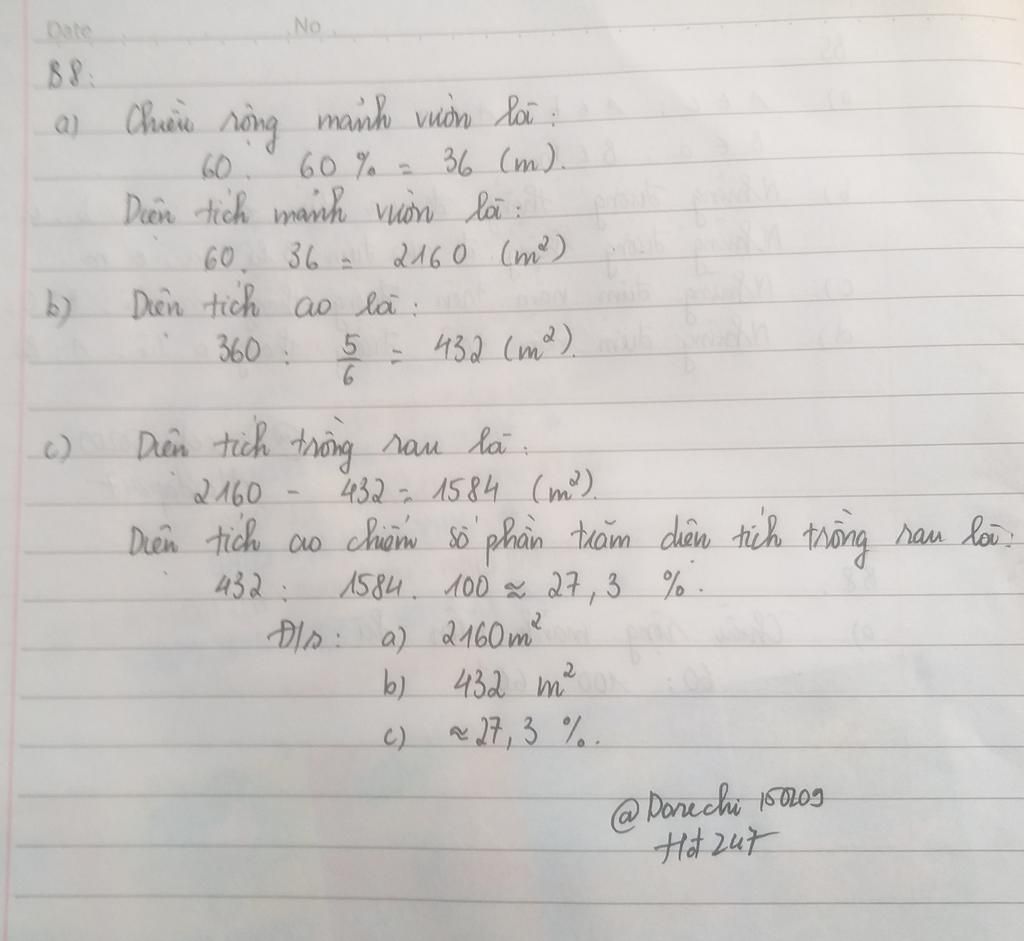 Date No
B8:
a) Chiều rộng mảnh vườn là:
60 . 60 % = 36 (m).
Diện tích mảnh vườn là:
60 . 36 = 2160 (m²)
b) Diện tích ao là:
360 : 5/6 = 432 (m²).
c) Diện tích trồng rau là:
2160 - 432 = 1584 (m²).
Diện tích ao chiếm số phần trăm diện tích trồng rau là:
432 : 1584 . 100 ≈ 27,3 %.
Đ/s: a) 2160m²
b) 432 m²
c) ≈ 27,3 %.